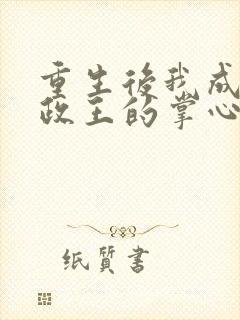 重生後我成
政王的掌心
纸質書